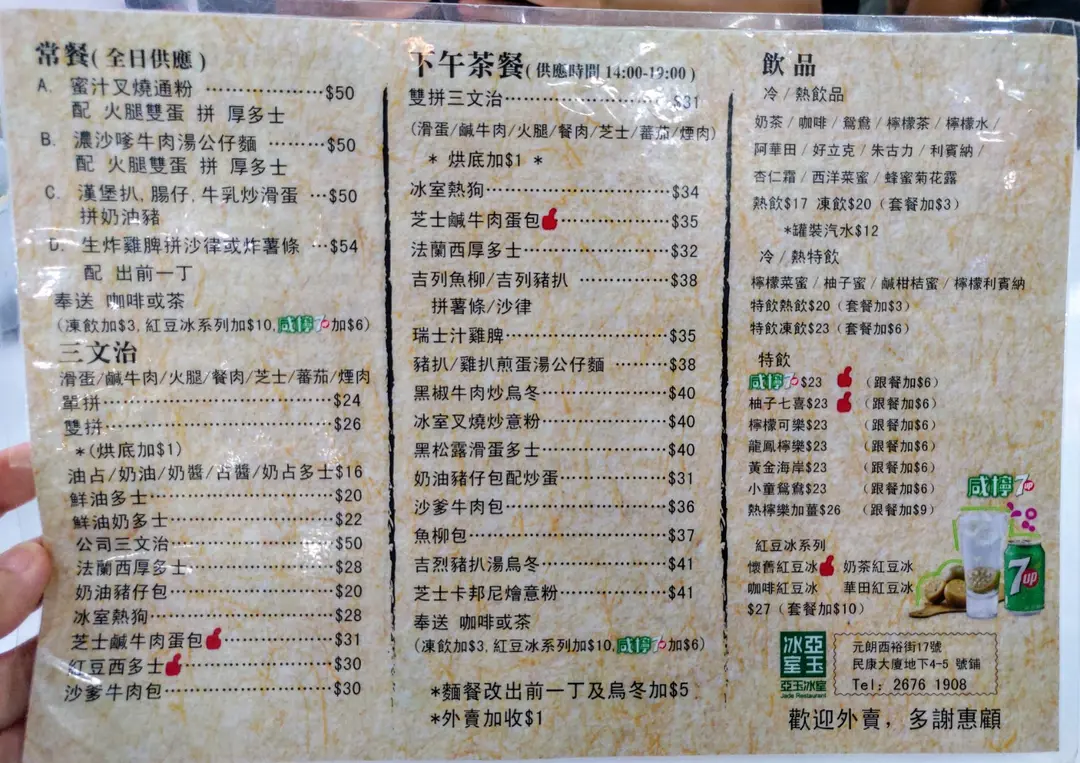 常餐(全日供應)
A. 蜜汁叉燒通粉 ………………$50
配 火腿雙蛋 拼 厚多士
B. 濃沙嗲牛肉湯公仔麵 ………$50
配 火腿雙蛋 拼 厚多士
C. 漢堡扒,腸仔,牛乳炒滑蛋 …$50
拼奶油豬
D. 生炸雞脾拼沙律或炸薯條 …$54
配 出前一丁
奉送 咖啡或茶
(凍飲加$3,紅豆冰系列加$10,咸檸7加$6)
三文治
滑蛋/鹹牛肉/火腿/餐肉/芝士/蕃茄/煙肉
單拼………………………………$24
雙拼………………………………$26
*(烘底加$1)
油占/奶油/奶醬/占醬/奶占多士$16
鮮油多士…………………………$20
鮮油奶多士………………………$22
公司三文治………………………$50
法蘭西厚多士……………………$28
奶油豬仔包………………………$20
冰室熱狗…………………………$28
芝士鹹牛肉蛋包………………$31
紅豆西多士……………………$30
沙爹牛肉包………………………$30
下午茶餐(供應時間 14:00-19:00)
雙拼三文治………………………$31
(滑蛋/鹹牛肉/火腿/餐肉/芝士/蕃茄/煙肉)
* 烘底加$1 *
冰室熱狗…………………………$34
芝士鹹牛肉蛋包………………$35
法蘭西厚多士……………………$32
吉列魚柳/吉列豬扒 ……………$38
拼薯條/沙律
瑞士汁雞脾………………………$35
豬扒/雞扒煎蛋湯公仔麵 ………$38
黑椒牛肉炒烏冬…………………$40
冰室叉燒炒意粉…………………$40
黑松露滑蛋多士…………………$40
奶油豬仔包配炒蛋………………$31
沙爹牛肉包………………………$36
魚柳包……………………………$37
吉烈豬扒湯烏冬…………………$41
芝士卡邦尼燴意粉………………$41
奉送 咖啡或茶
(凍飲加$3,紅豆冰系列加$10,咸檸7加$6)
*麵餐改出前一丁及烏冬加$5
*外賣加收$1
飲品
冷/熱飲品
奶茶/咖啡/鴛鴦/檸檬茶/檸檬水/
阿華田/好立克/朱古力/利賓納/
杏仁霜/西洋菜蜜/蜂蜜菊花露
熱飲$17 凍飲$20(套餐加$3)
*罐裝汽水$12
冷/熱特飲
檸檬菜蜜/柚子蜜/鹹柑桔蜜/檸檬利賓納
特飲熱飲$20(套餐加$3)
特飲凍飲$23(套餐加$6)
特飲
咸檸7$23 (跟餐加$6)
柚子七喜$23 (跟餐加$6)
檸檬可樂$23 (跟餐加$6)
龍鳳檸樂$23 (跟餐加$6)
黃金海岸$23 (跟餐加$6)
小童鴛鴦$23 (跟餐加$6)
熱檸樂加薑$26 (跟餐加$9)
咸檸7up
7up
紅豆冰系列
懷舊紅豆冰 奶茶紅豆冰
咖啡紅豆冰 華田紅豆冰
$27(套餐加$10)
亞玉冰室
亞玉冰室
Jade Restaurant
元朗西裕街17號
民康大廈地下4-5 號舖
Tel: 2676 1908
歡迎外賣,多謝惠顧